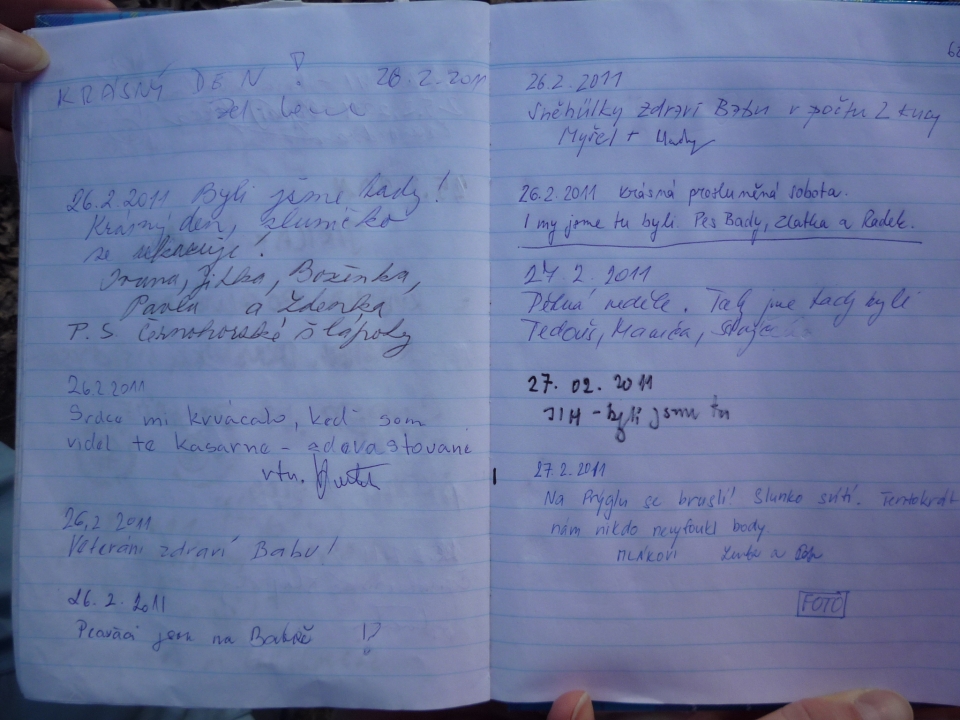 KRÁSNÝ DEN! 28.2.2011
26.2.2011 Byli jsme tady!
Krásný den, sluníčko
se ukazuje!
Ivana, Jitka, Boženka,
Pavla a Zdenka
P.S Černohorské šlapky
26.2.2011
Srdce mi krvácalo, keď som
videl te kasarne - zdevastované
vtn.
26.2.2011
Veteráni zdraví Babu!
26.2.2011
jsem na Babě !?
62
26.2.2011
Sněhůlky zdraví Babu v počtu 2 kusy
Myšel +
26.2.2011 krásná prosluněná sobota.
I my jsme tu byli. Pes Bady, Zlatka a Radek.
27.2.2011
Pěkná neděle. Taky jsme tady byli
Tedouš, Mamča,
27.02.2011
JIH - byli jsme tu
27.2.2011
Na Prýglu se bruslí! Slunko svítí. Tentokrát
nám nikdo nevyfoukl body
a
FOTO